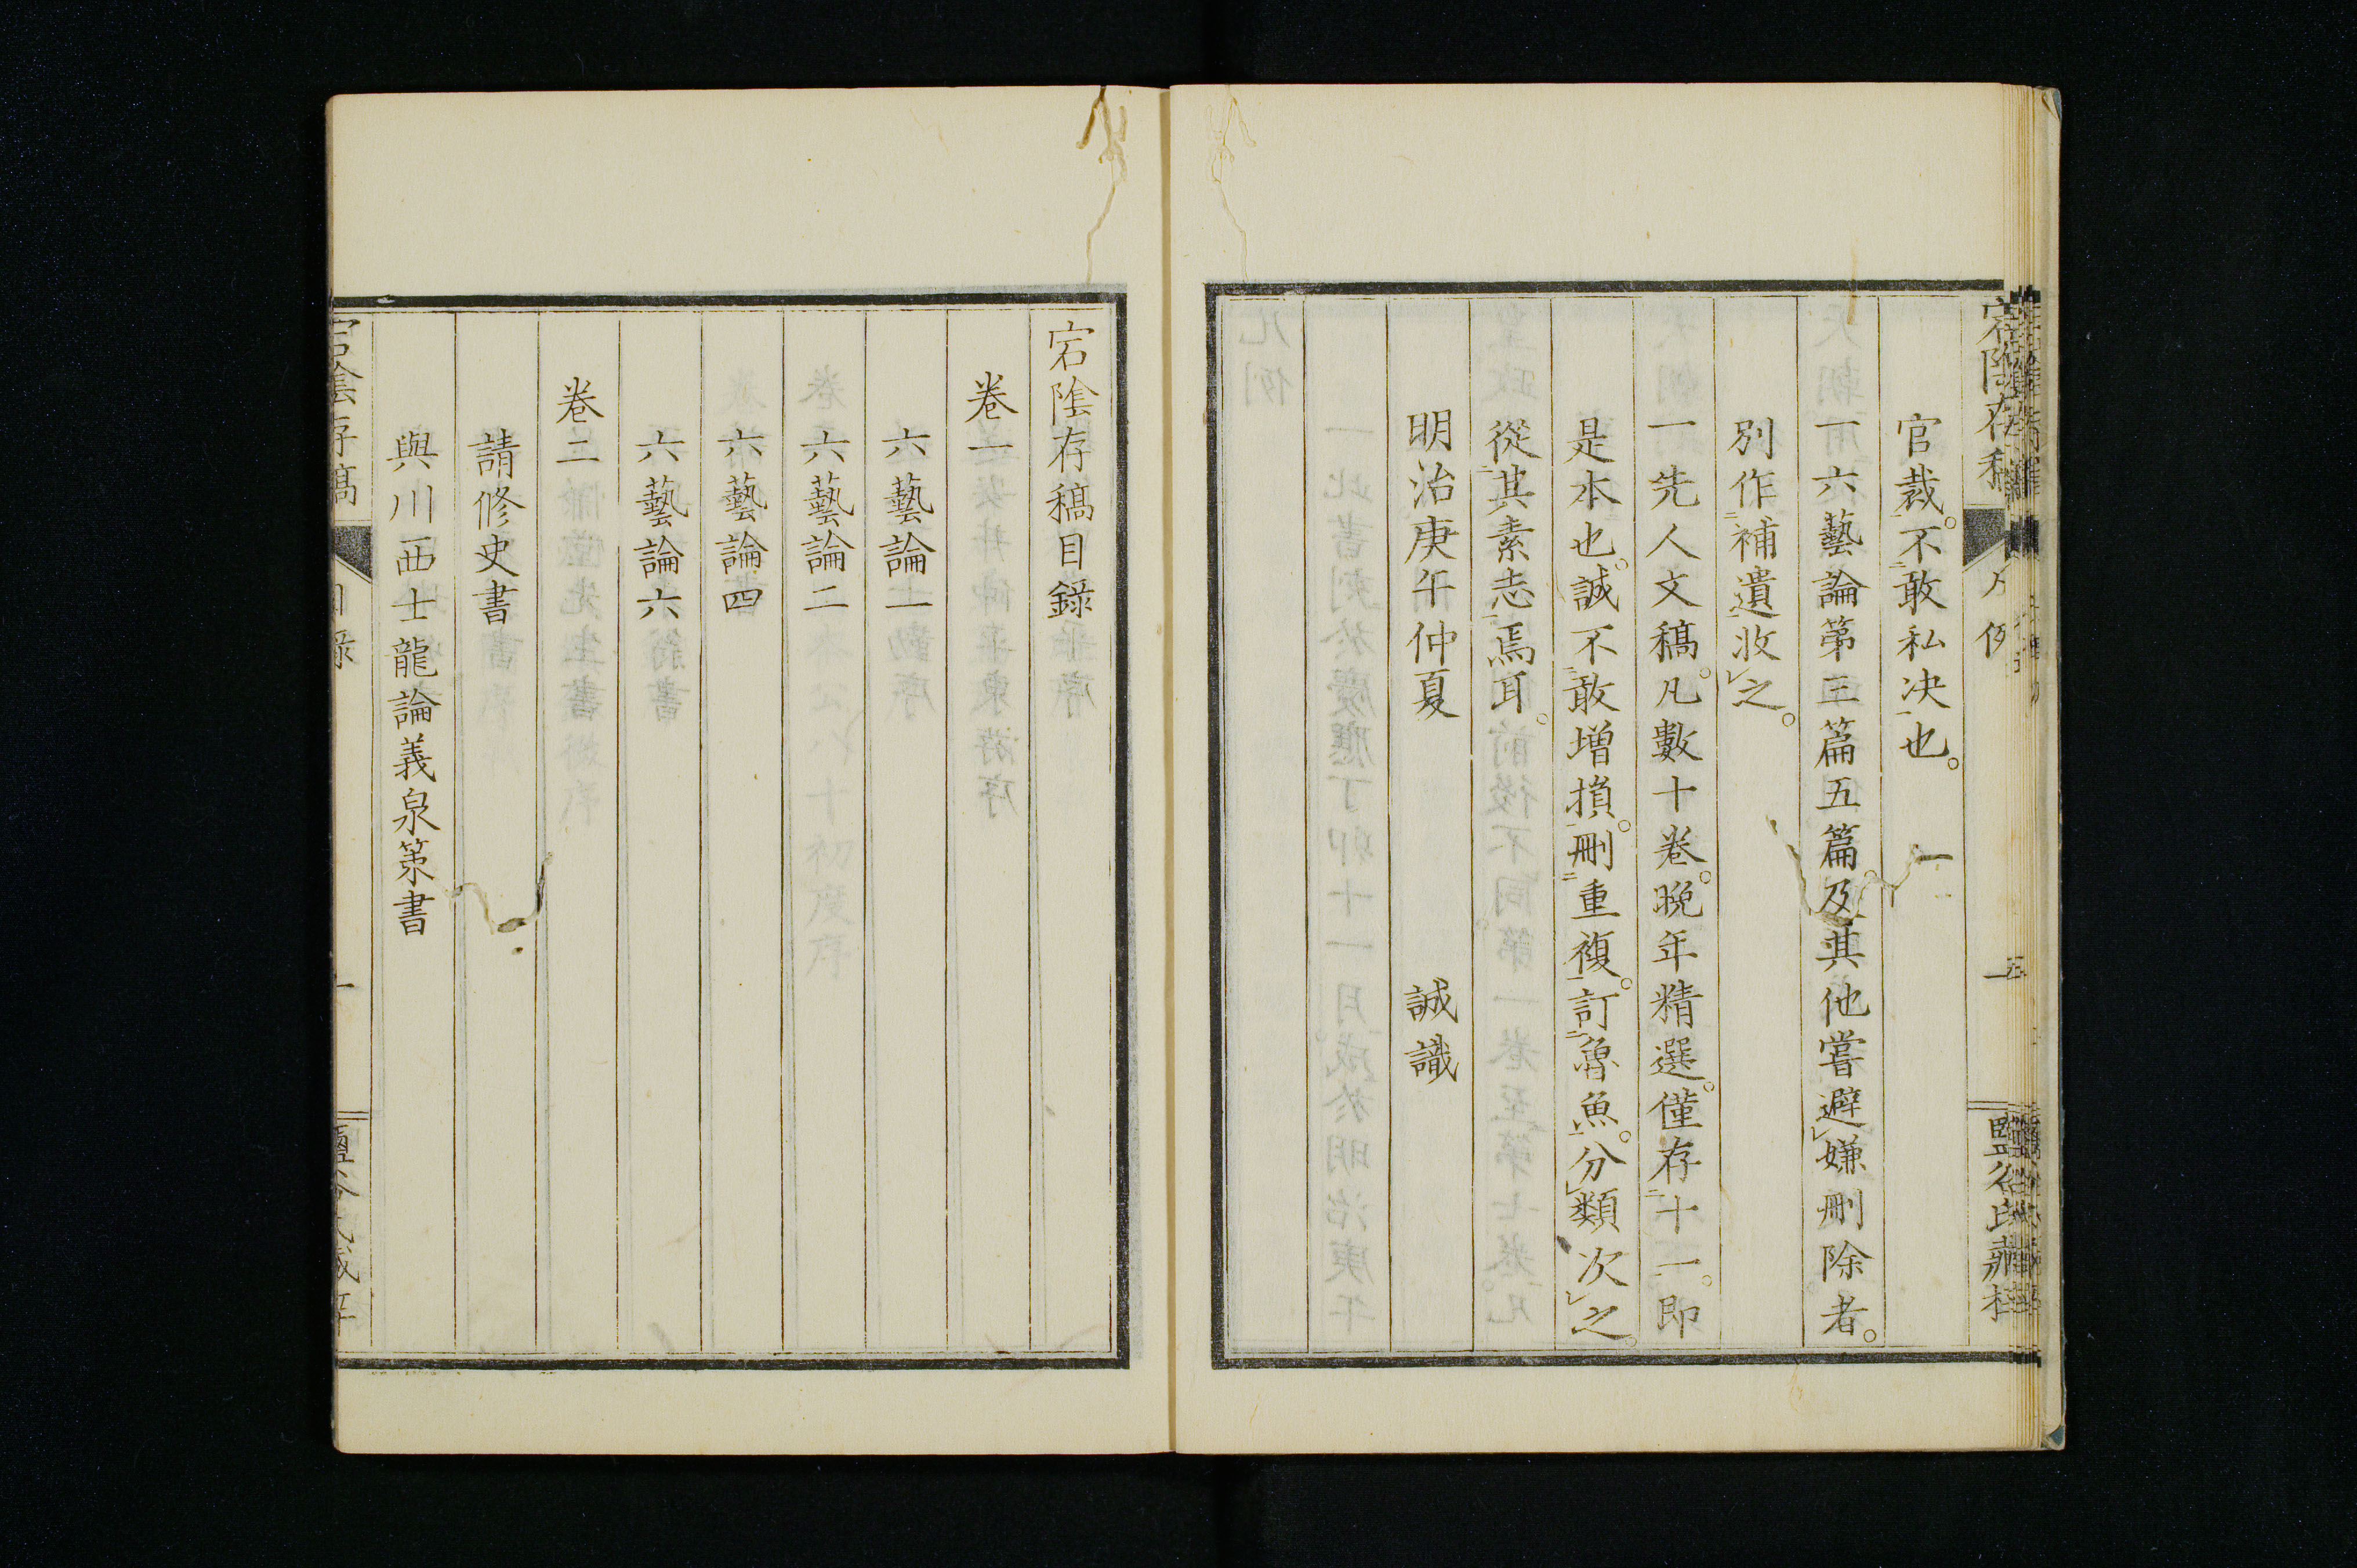 官裁。不敢私决也。
一六藝論第三篇五篇。及其他嘗避嫌刪除者。
別作補遺收之。
一先人文稿。凡數十卷。晚年精選。僅存十一。即
是本也。誠不敢增損。刪重複。訂魯魚。分類次之。
從其素志焉耳。
明治庚午仲夏 誠識
宕陰存稿目錄
卷一
六藝論一
六藝論二
六藝論四
六藝論六
卷二
請修史書
與川西士龍論義泉第書